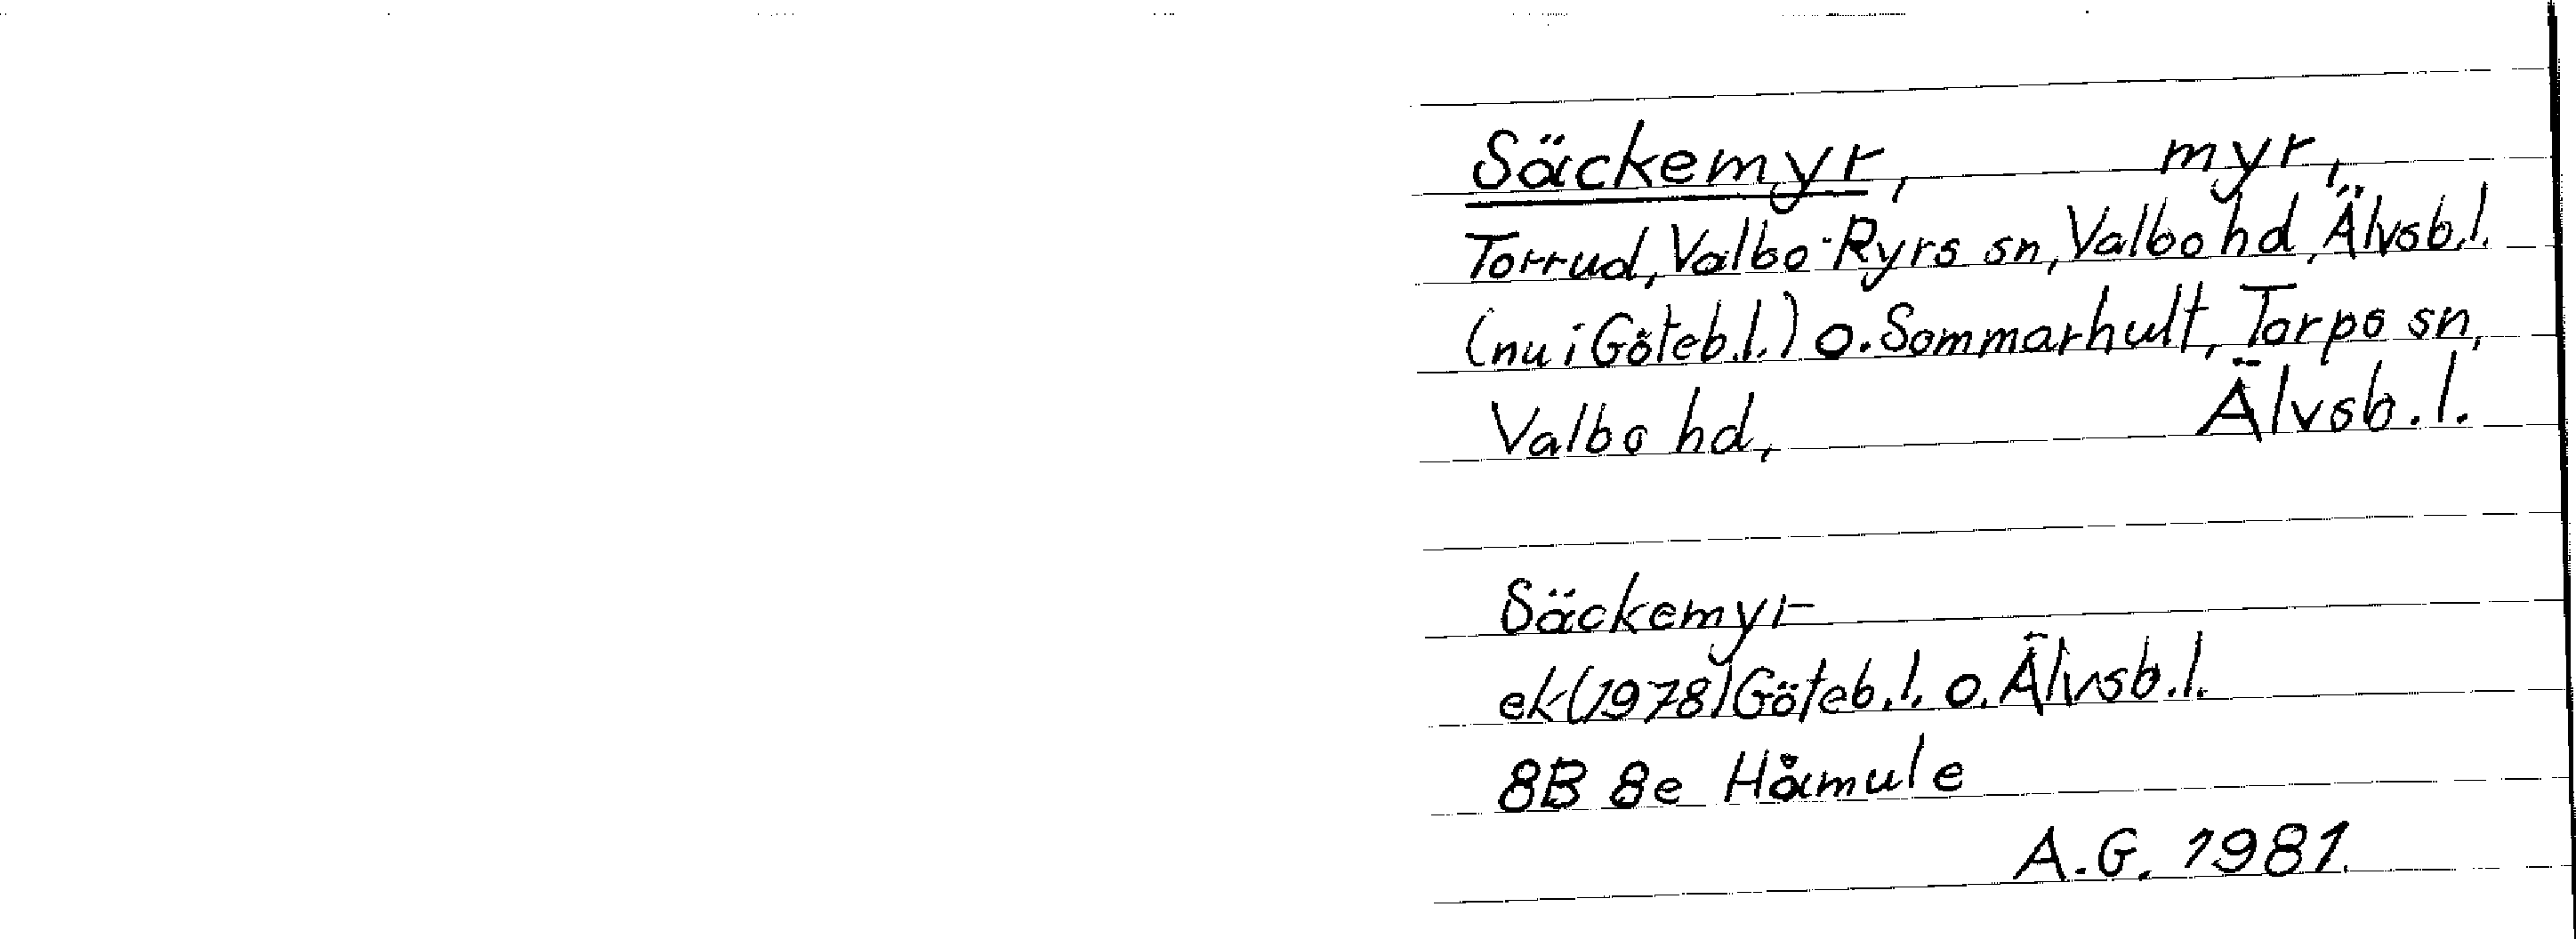 Säckemyr, myr,
Torrud, Valbo-Ryrs sn, Valbo hd, Älvsb.l.
(nu i Göteb.l.) o. Sommarhult, Torps sn,
Valbo hd, Älvsb.l.
Säckemyr
ek (1978) Göteb.l. o. Älvsb.l.
8B 8e Håmule
A.G. 1981.